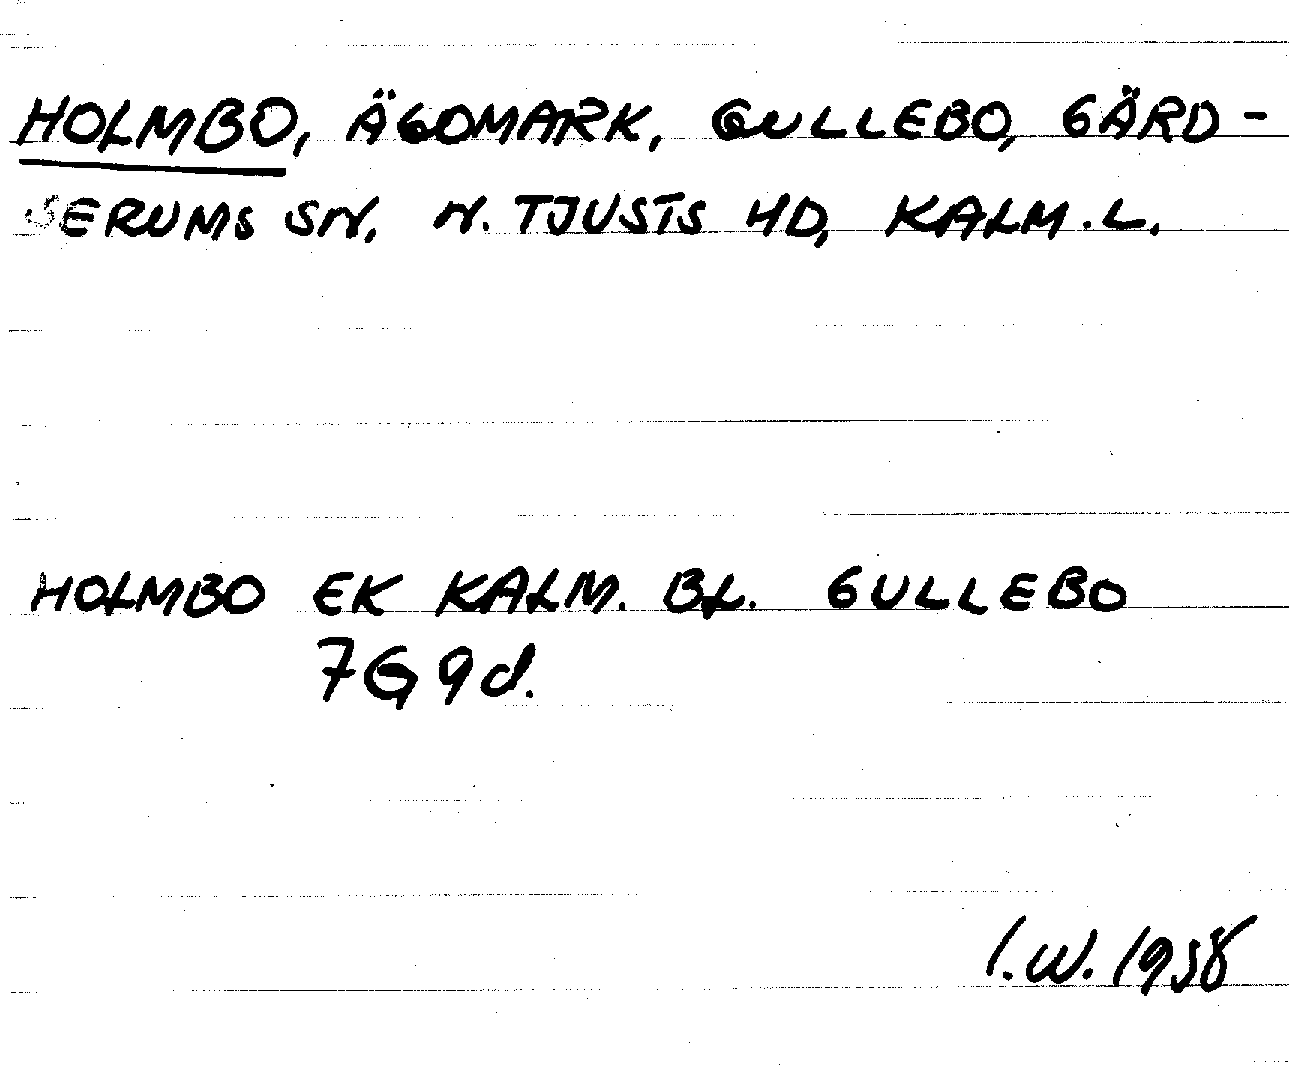 HOLMBO, ÄGOMARK, GULLEBO, GÄRD-
SERUMS SN. N. TJUSTS HD, KALM. L.
HOLMBO EK KALM. BL. GULLEBO
7G9d.
I.W. 1958